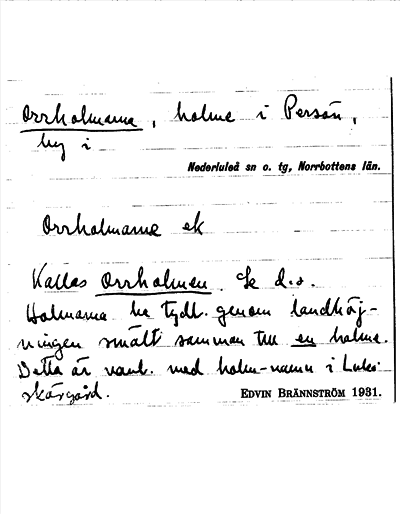 Orrholmarna, holme i Persön,
by i
Nederluleå sn o. tg, Norrbottens län.
Orrholmarna ek
Kallas Orrholmen. Se d.o.
Holmarna ha tydl. genom landhöj-
ningen smält samman till en holme.
Detta är vanl. med holm-namn i Lule
skärgård.
EDVIN BRÄNNSTRÖM 1931.